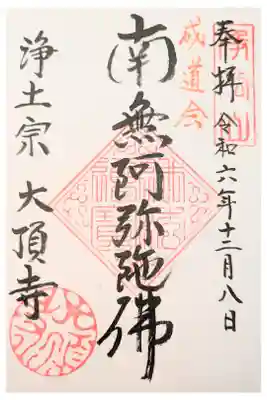 奉拝 令和六年十二月八日
成道会
南無阿弥陀佛
浄土宗 大頂寺